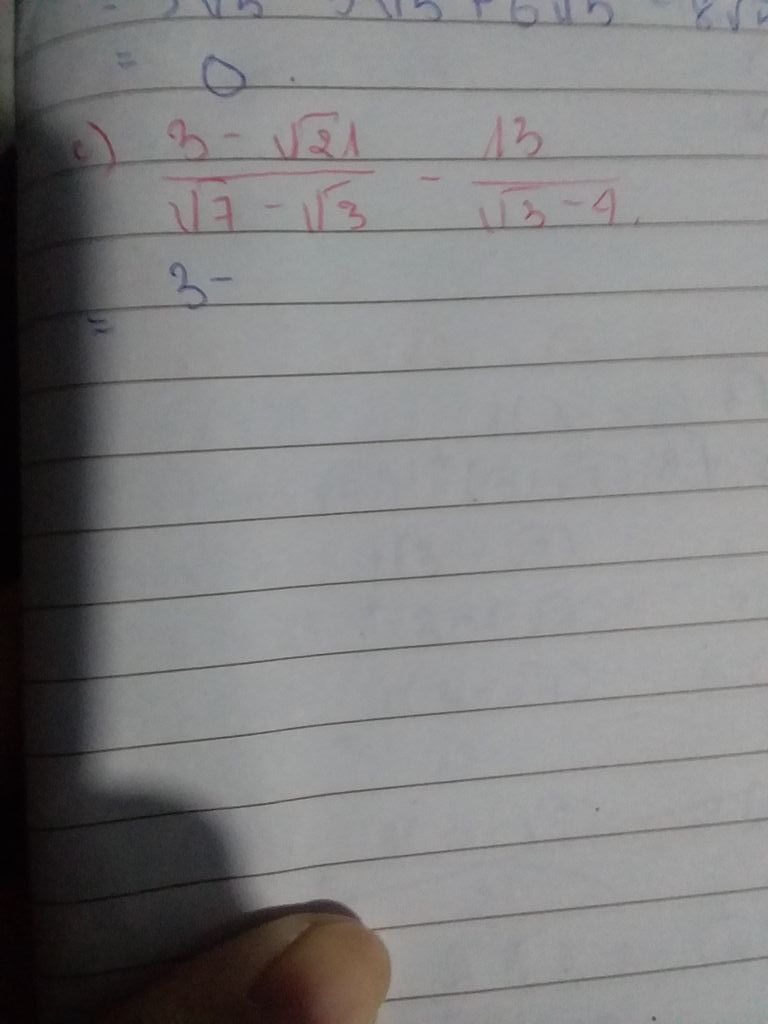 = 0.
c) 3 - √21 / √7 - √3 - 13 / √3 - 4.
= 3 -